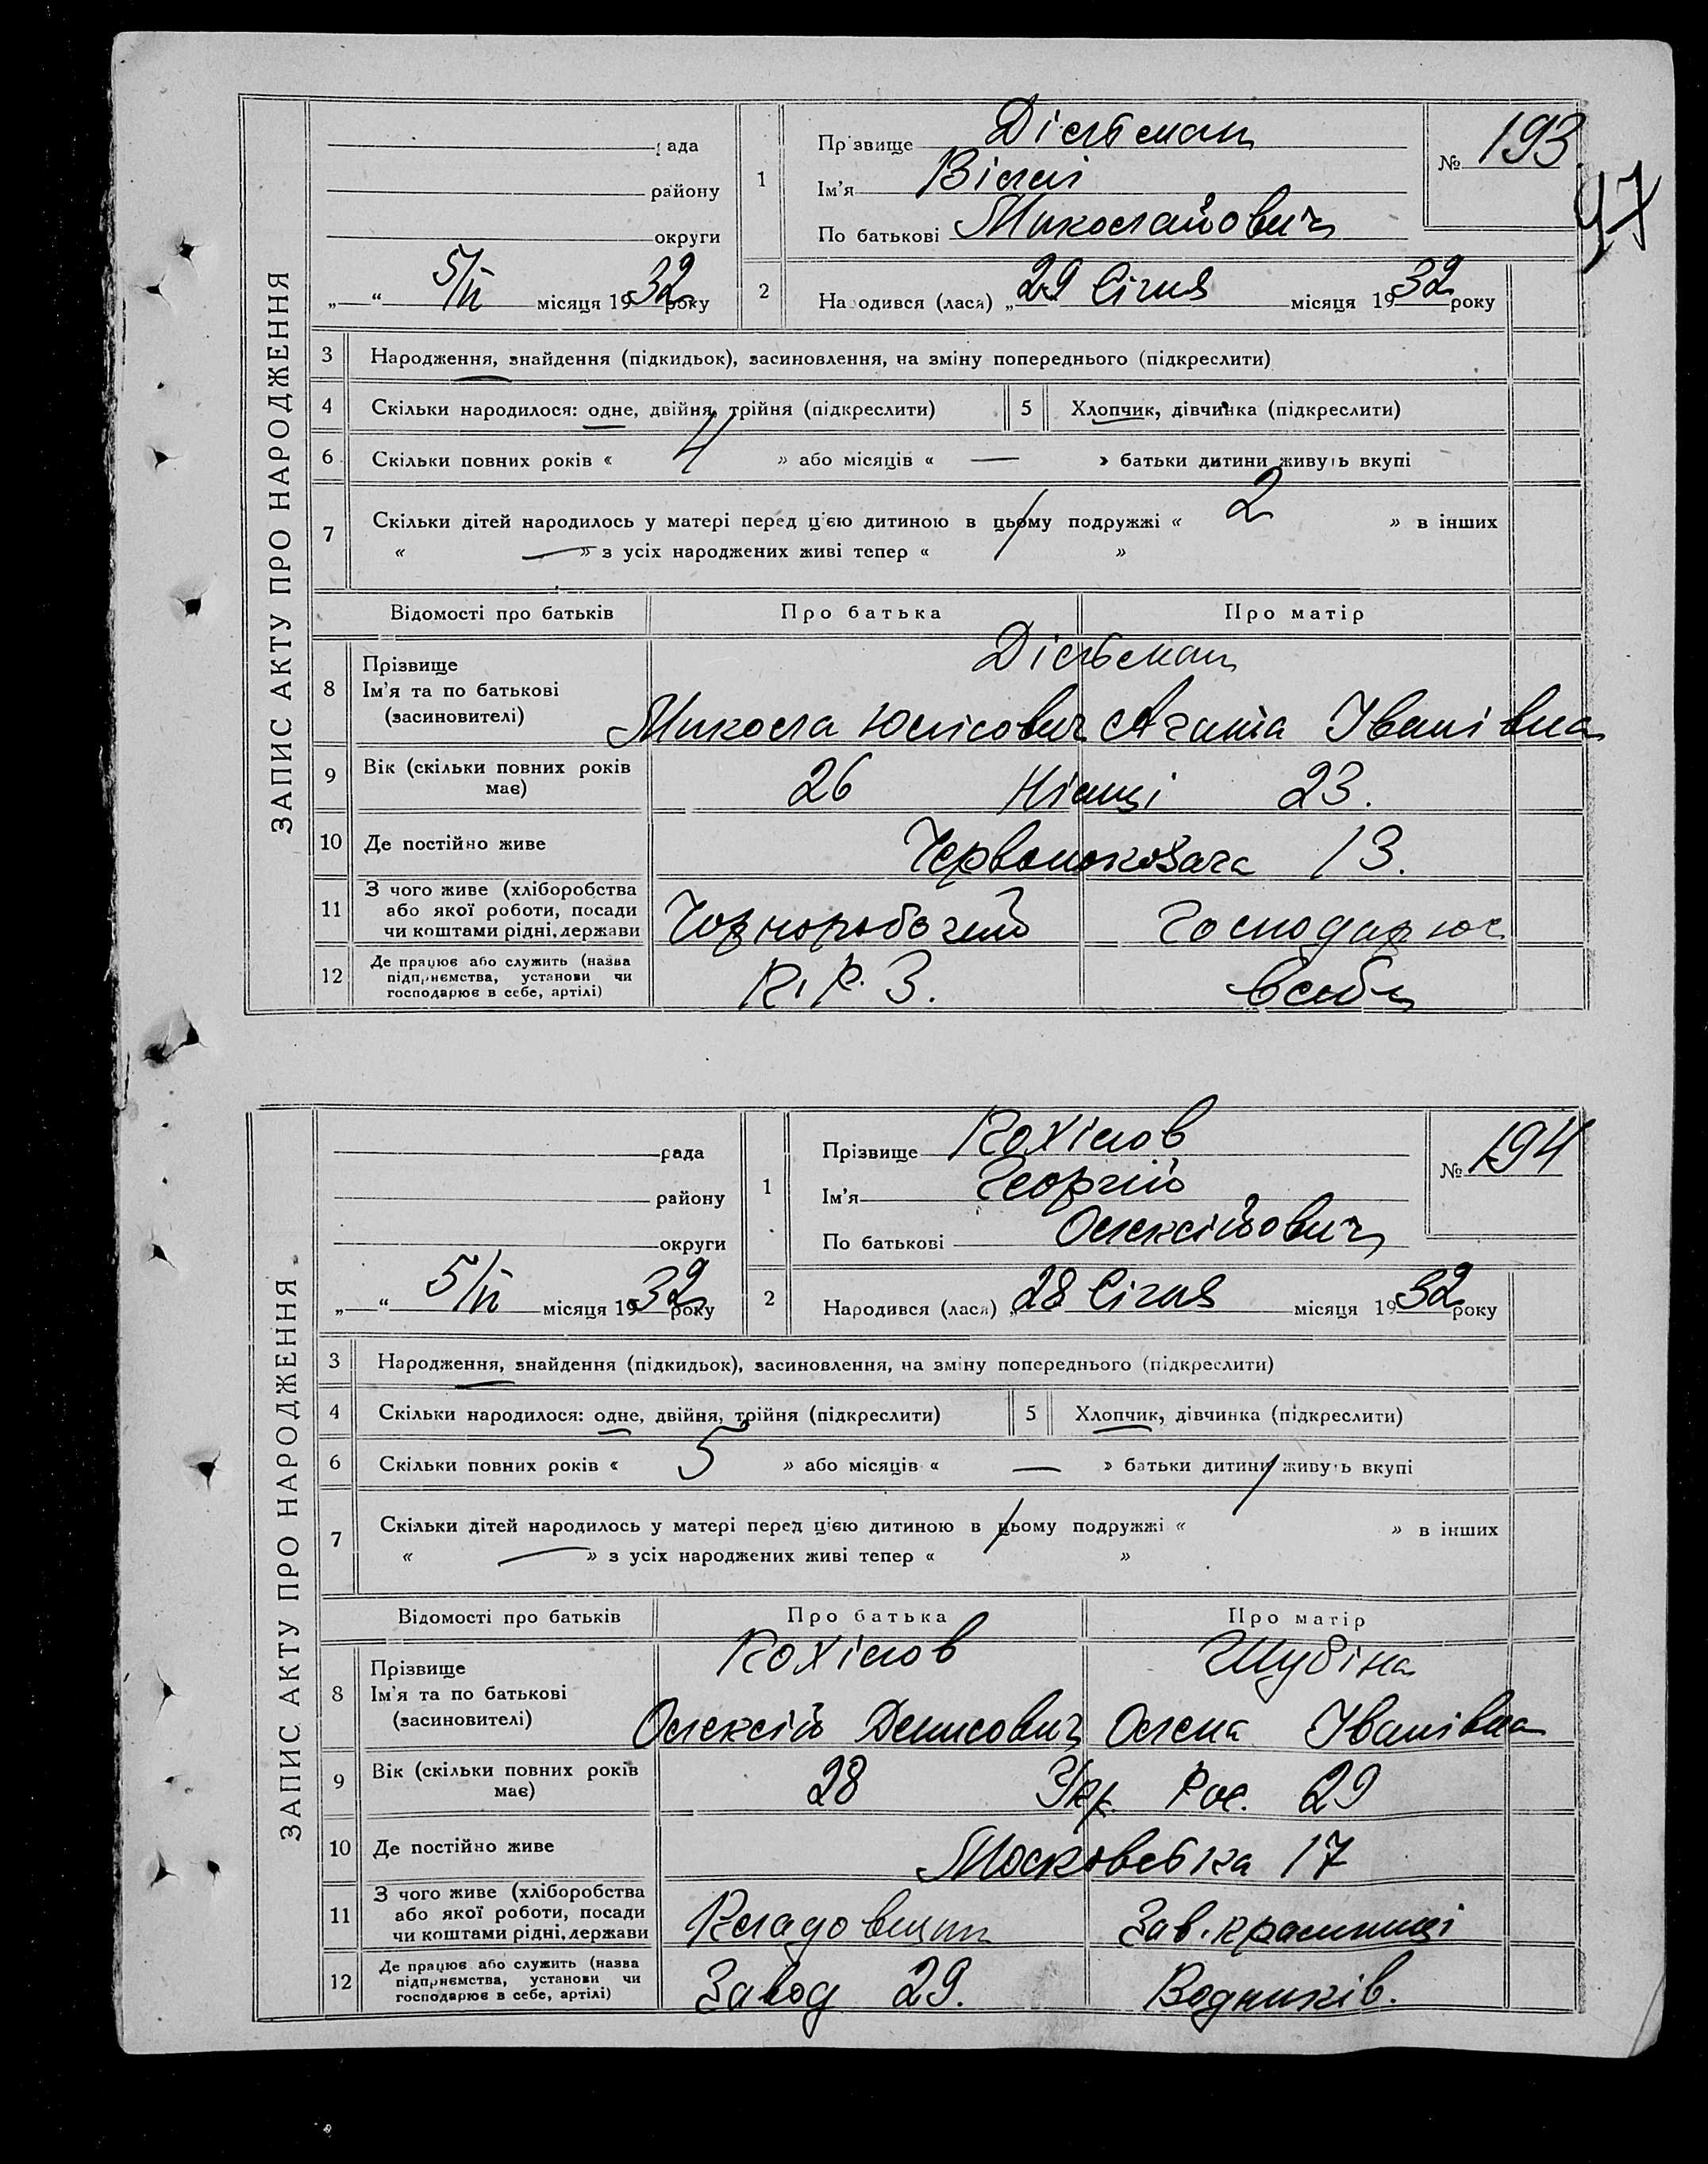 ЗАПИС АКТУ ПРО НАРОДЖЕННЯ
рада
району
округи
5/ІІ місяця 1932 року
1
Прізвище Дільман
Ім'я Віллі
По батькові Миколайович
№ 193
97
2
Народився (лася) „29 Січня місяця 1932 року
3 Народження, знайдення (підкидьок), засиновлення, на зміну попереднього (підкреслити)
4 Скільки народилося: одне, двійня, трійня (підкреслити)
5 Хлопчик, дівчинка (підкреслити)
6 Скільки повних років « 4 » або місяців « — » батьки дитини живуть вкупі
7 Скільки дітей народилось у матері перед цією дитиною в цьому подружжі « 2 » в інших
« — » з усіх народжених живі тепер « »
Відомості про батьків Про батька Про матір
8 Прізвище Дільман
Ім'я та по батькові
(засиновителі)
Микола Юлісович Агата Іванівна
9 Вік (скільки повних років має) 26 Німці 23.
10 Де постійно живе Червонокозача 13.
11 З чого живе (хліборобства або якої роботи, посади чи коштами рідні, держави Чорноробочий Господарює
12 Де працює або служить (назва підприємства, установи чи господарює в себе, артілі) К. Р. З. в себе
ЗАПИС АКТУ ПРО НАРОДЖЕННЯ
рада
району
округи
5/ІІ місяця 1932 року
1
Прізвище Кохілов
Ім'я Георгій
По батькові Олексійович
№ 194
2
Народився (лася) „28 Січня місяця 1932 року
3 Народження, знайдення (підкидьок), засиновлення, на зміну попереднього (підкреслити)
4 Скільки народилося: одне, двійня, трійня (підкреслити)
5 Хлопчик, дівчинка (підкреслити)
6 Скільки повних років « 5 » або місяців « — » батьки дитини живуть вкупі
7 Скільки дітей народилось у матері перед цією дитиною в цьому подружжі « » в інших
« — » з усіх народжених живі тепер « »
Відомості про батьків Про батька Про матір
8 Прізвище Кохілов Шубіна
Ім'я та по батькові
(засиновителі)
Олексій Денисович Олена Іванівна
9 Вік (скільки повних років має) 28 Укр. Рос. 29
10 Де постійно живе Московська 17
11 З чого живе (хліборобства або якої роботи, посади чи коштами рідні, держави Кладовщик Зав. крамниці
12 Де працює або служить (назва підприємства, установи чи господарює в себе, артілі) Завод 29. Водників.